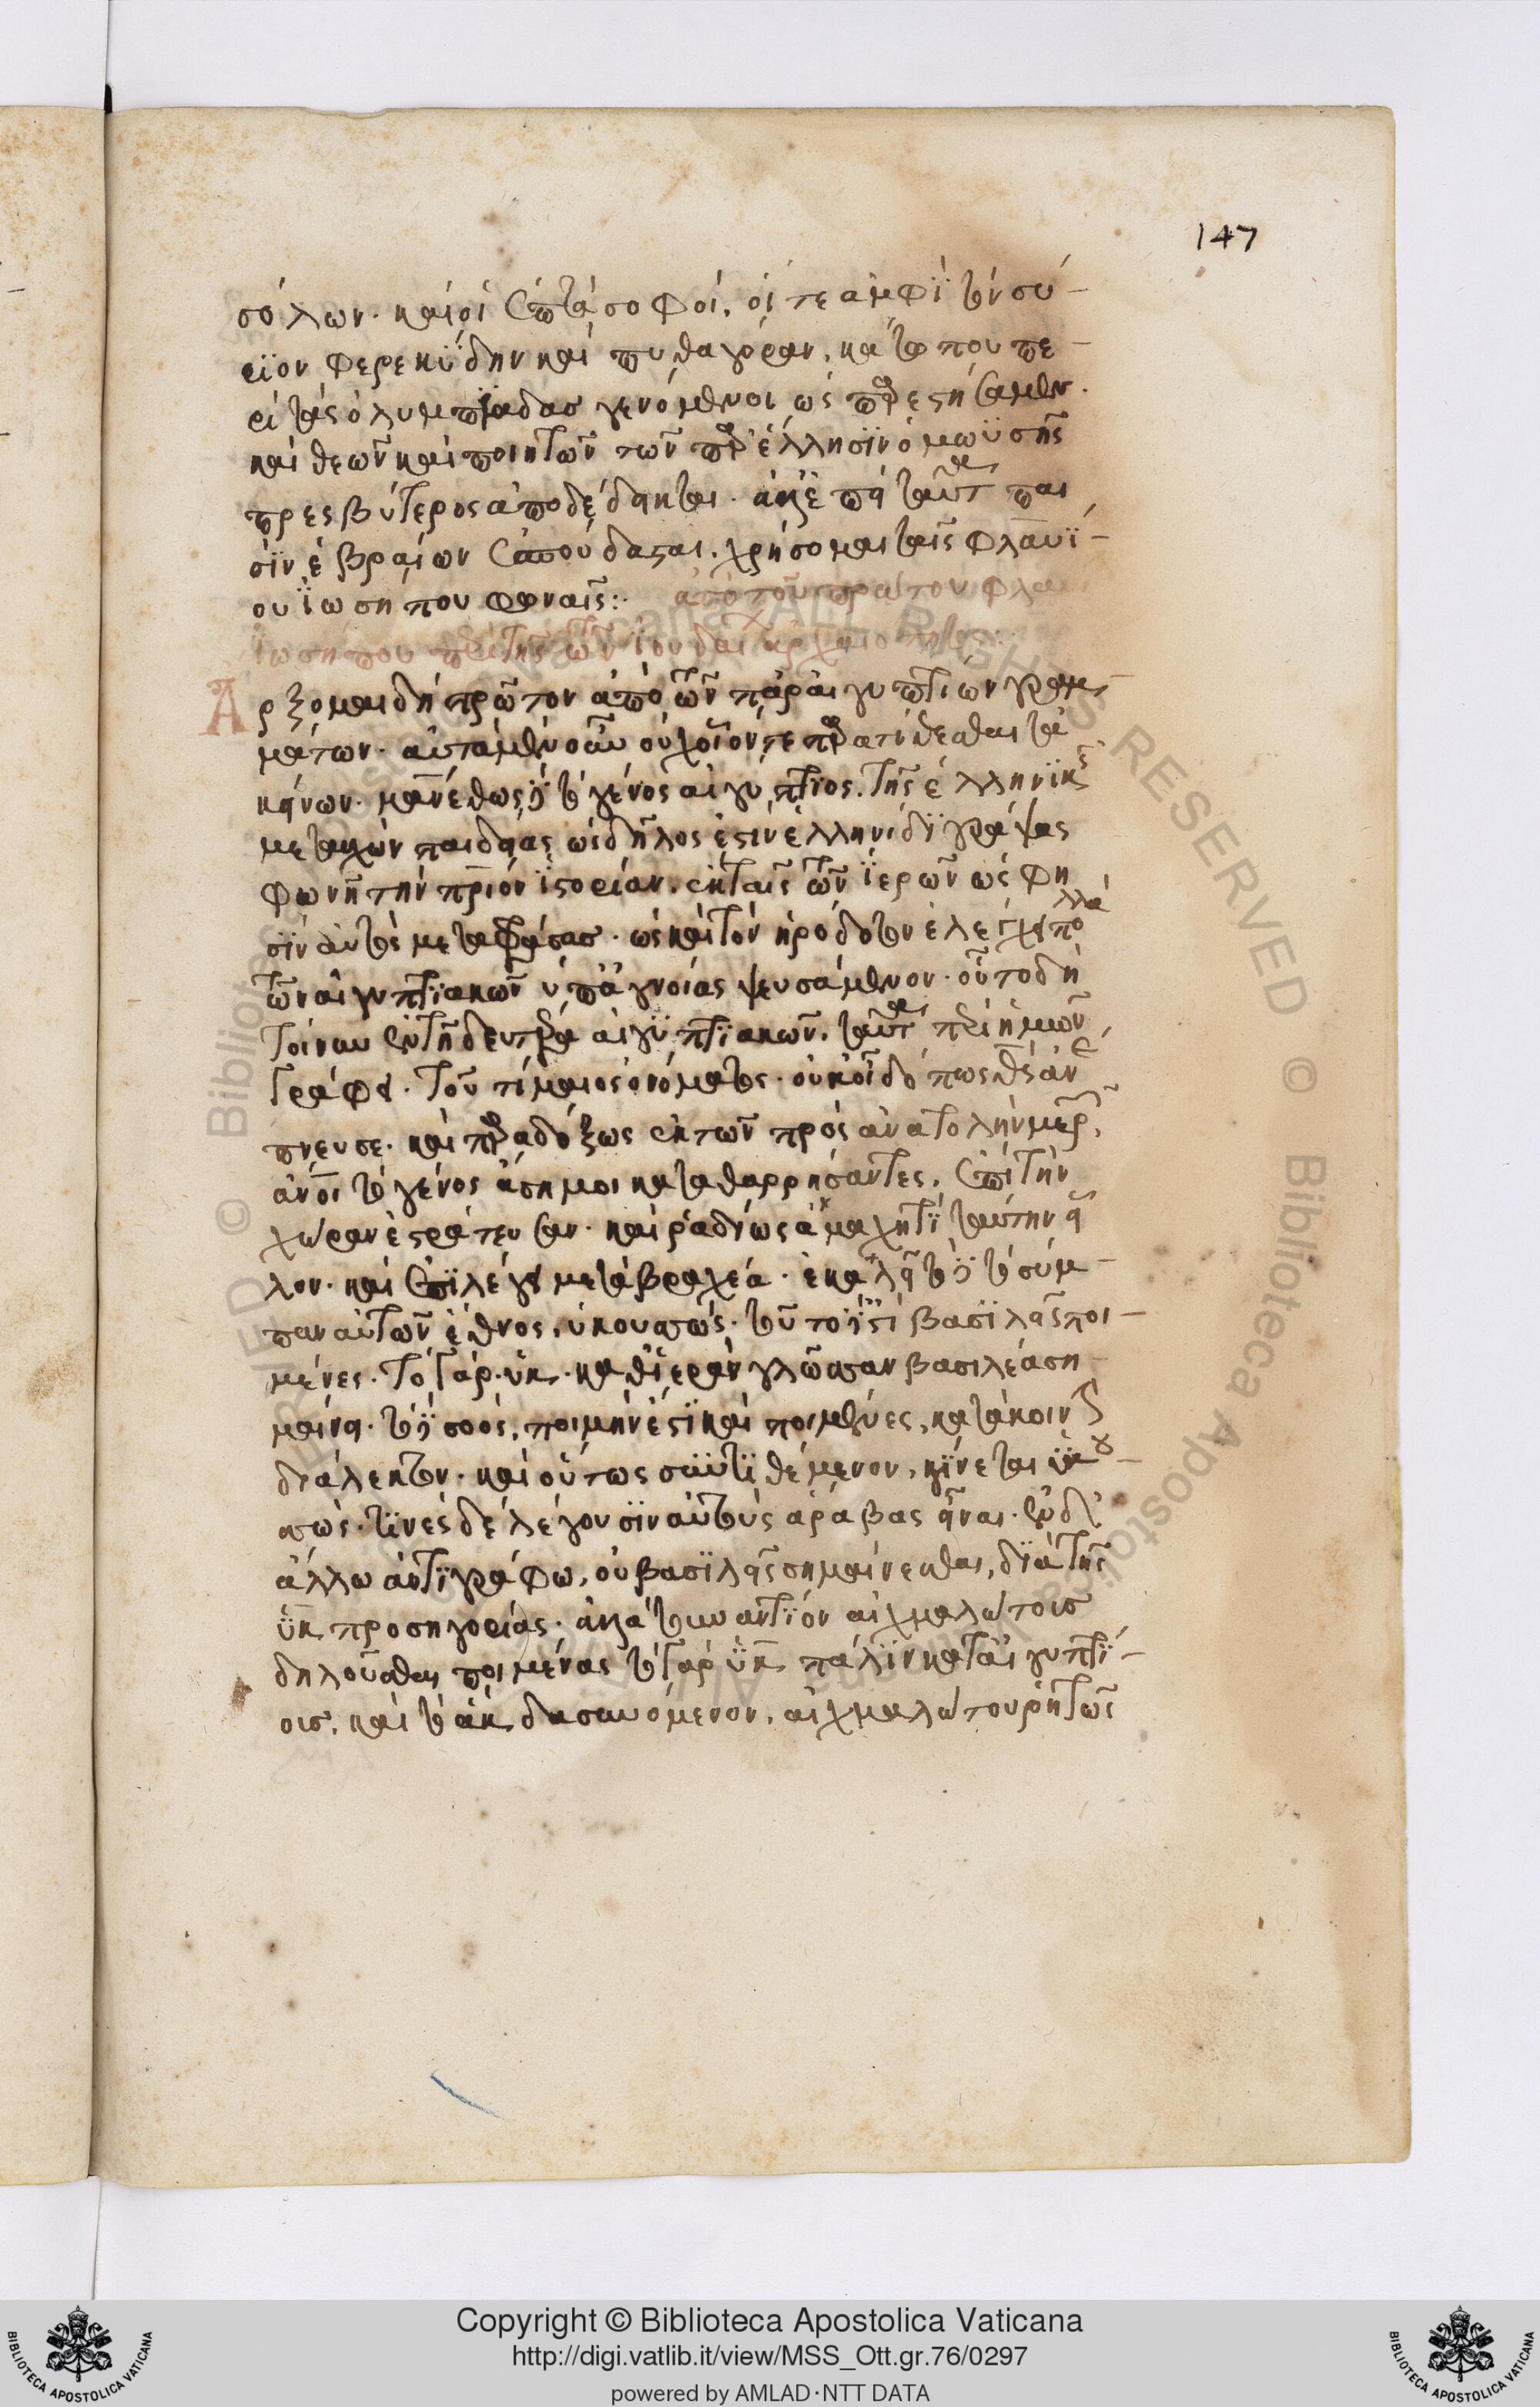 147
σόλων. καὶ οἱ ἑπτὰ σοφοί. οἵ τε ἀμφὶ τὸν σύ-
ριον φερεκύδην καὶ πυθαγόραν. κάτω που πε-
ρὶ τὰς ὀλυμπιάδας γενόμενοι ὡς παρεστήσαμεν.
καὶ θεῶν καὶ ποιητῶν τῶν παρ' ἕλλησιν ὁ μωϋσῆς
πρεσβύτερος ἀποδέδεικται. ἀλλ' ἐπεὶ ταῦτα παι
σὶν ἑβραίων ἐσπούδασται. χρήσομαι ταῖς φλαυΐ-
ου ϊωσήπου φωναῖς:. ἀπὸ τοῦ πρώτου φλα
ϊωσήπου περὶ τῆς τῶν ἰουδαί ἀρχαιότητος:.
Ἄρξομαι δὴ πρῶτον ἀπὸ τῶν παρ' αἰγυπτίων γραμ-
μάτων. αὐτὰ μὲν οὖν οὐχ οἷόν τε παρατίθεσθαι τὰ
κείνων. μανέθως δ' ἦν τὸ γένος αἰγύπτιος. τῆς ἑλληνικῆς
μετασχὼν παιδείας ὡς δῆλός ἐστιν ἑλληνίδι γράψας
φωνῇ τὴν πάτριον ἱστορίαν. ἔκ τε τῶν ἱερῶν ὡς φη
σὶν αὐτὸς μεταφράσας. ὡς καὶ τὸν ἡρόδοτον ἐλέγχει πολλὰ
τῶν αἰγυπτιακῶν ὑπ' ἀγνοίας ψευσάμενον. οὗτο δὴ
τοίνυν ἐν τῇ δευτέρᾳ αἰγυπτιακῶν. ταῦτα περὶ ἡμῶν
γράφει. τοῦ τίμαιος ὀνόματος. οὐκ οἶδ' ὅπως θς ἀντέ
πνευσε. καὶ παραδόξως ἐκ τῶν πρὸς ἀνατολὴν μερῶν
ἄνοι τὸ γένος ἄσημοι καταθαρρήσαντες. ἐπὶ τὴν
χώραν ἐστράτευσαν. καὶ ῥαδίως ἀμαχητὶ ταύτην εἷ
λον. καὶ ἐπιλέγει μετὰ βραχέα. ἐκαλεῖτο δὲ τὸ σύμ-
παν αὐτῶν ἔθνος. ὑκουσσώς. τοῦτο δέ ἐστι βασιλεῖς ποι-
μένες. τὸ γὰρ. ὓκ. καθ' ἱερὰν γλῶσσαν βασιλέα ση
μαίνει. τὸ δὲ σσὸς. ποιμήν ἐστι καὶ ποιμένες. κατὰ κοινὴν
διάλεκτον. καὶ οὕτως συντιθέμενον. γίνεται ὑκου-
σσώς. τινὲς δὲ λέγουσιν αὐτοὺς ἄραβας εἶναι. ἐν δ'
ἄλλῳ ἀντιγράφῳ. οὐ βασιλεῖς σημαίνεσθαι. διὰ τῆς
ὓκ προσηγορίας. ἀλλὰ τοὐναντίον αἰχμαλώτους
δηλοῦσθαι ποιμένας τὸ γὰρ ὓκ πάλιν κατ' αἰγυπτί-
οις. καὶ τὸ ἂκ δασυνόμενον. αἰχμαλώτου ῥητῶς
Copyright © Biblioteca Apostolica Vaticana
http://digi.vatlib.it/view/MSS_Ott.gr.76/0297
powered by AMLAD·NTT DATA